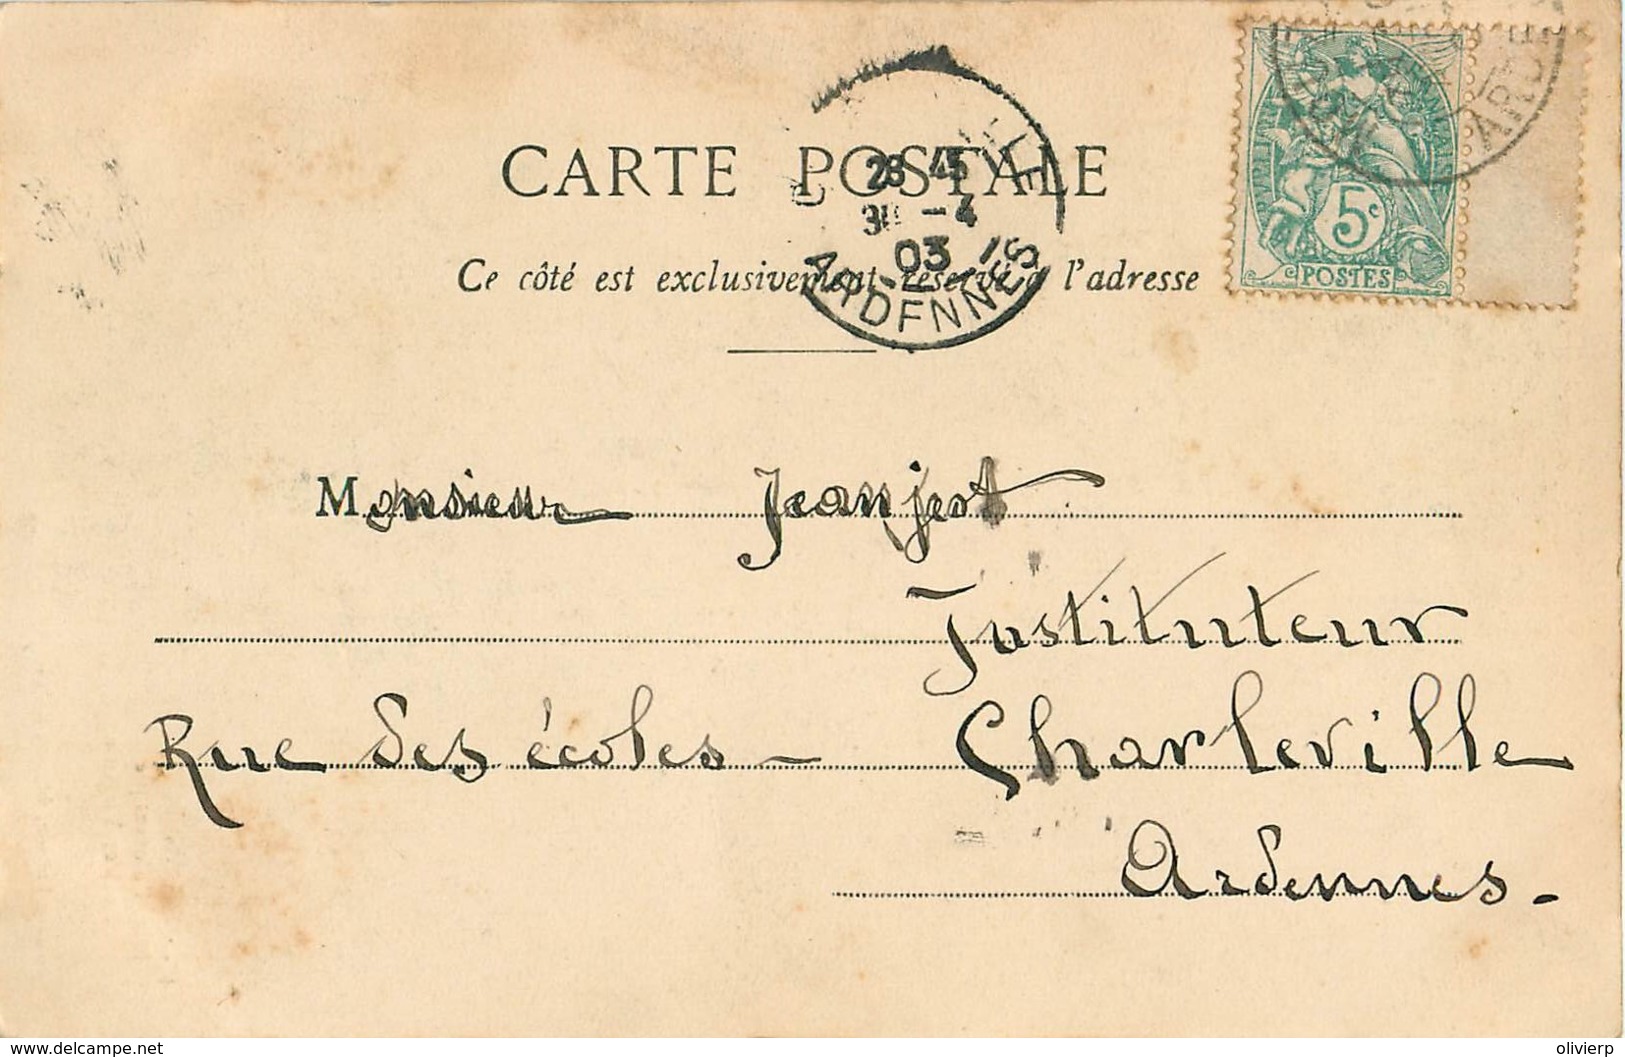 CARTE POSTALE
Ce côté est exclusivement réservé à l'adresse
28 45
30 -4
03
ARDENNES
5c
POSTES
ARDE
Monsieur Jeanjot
Instituteur
Rue des écoles - Charleville
Ardennes.
www.delcampe.net
olivierp